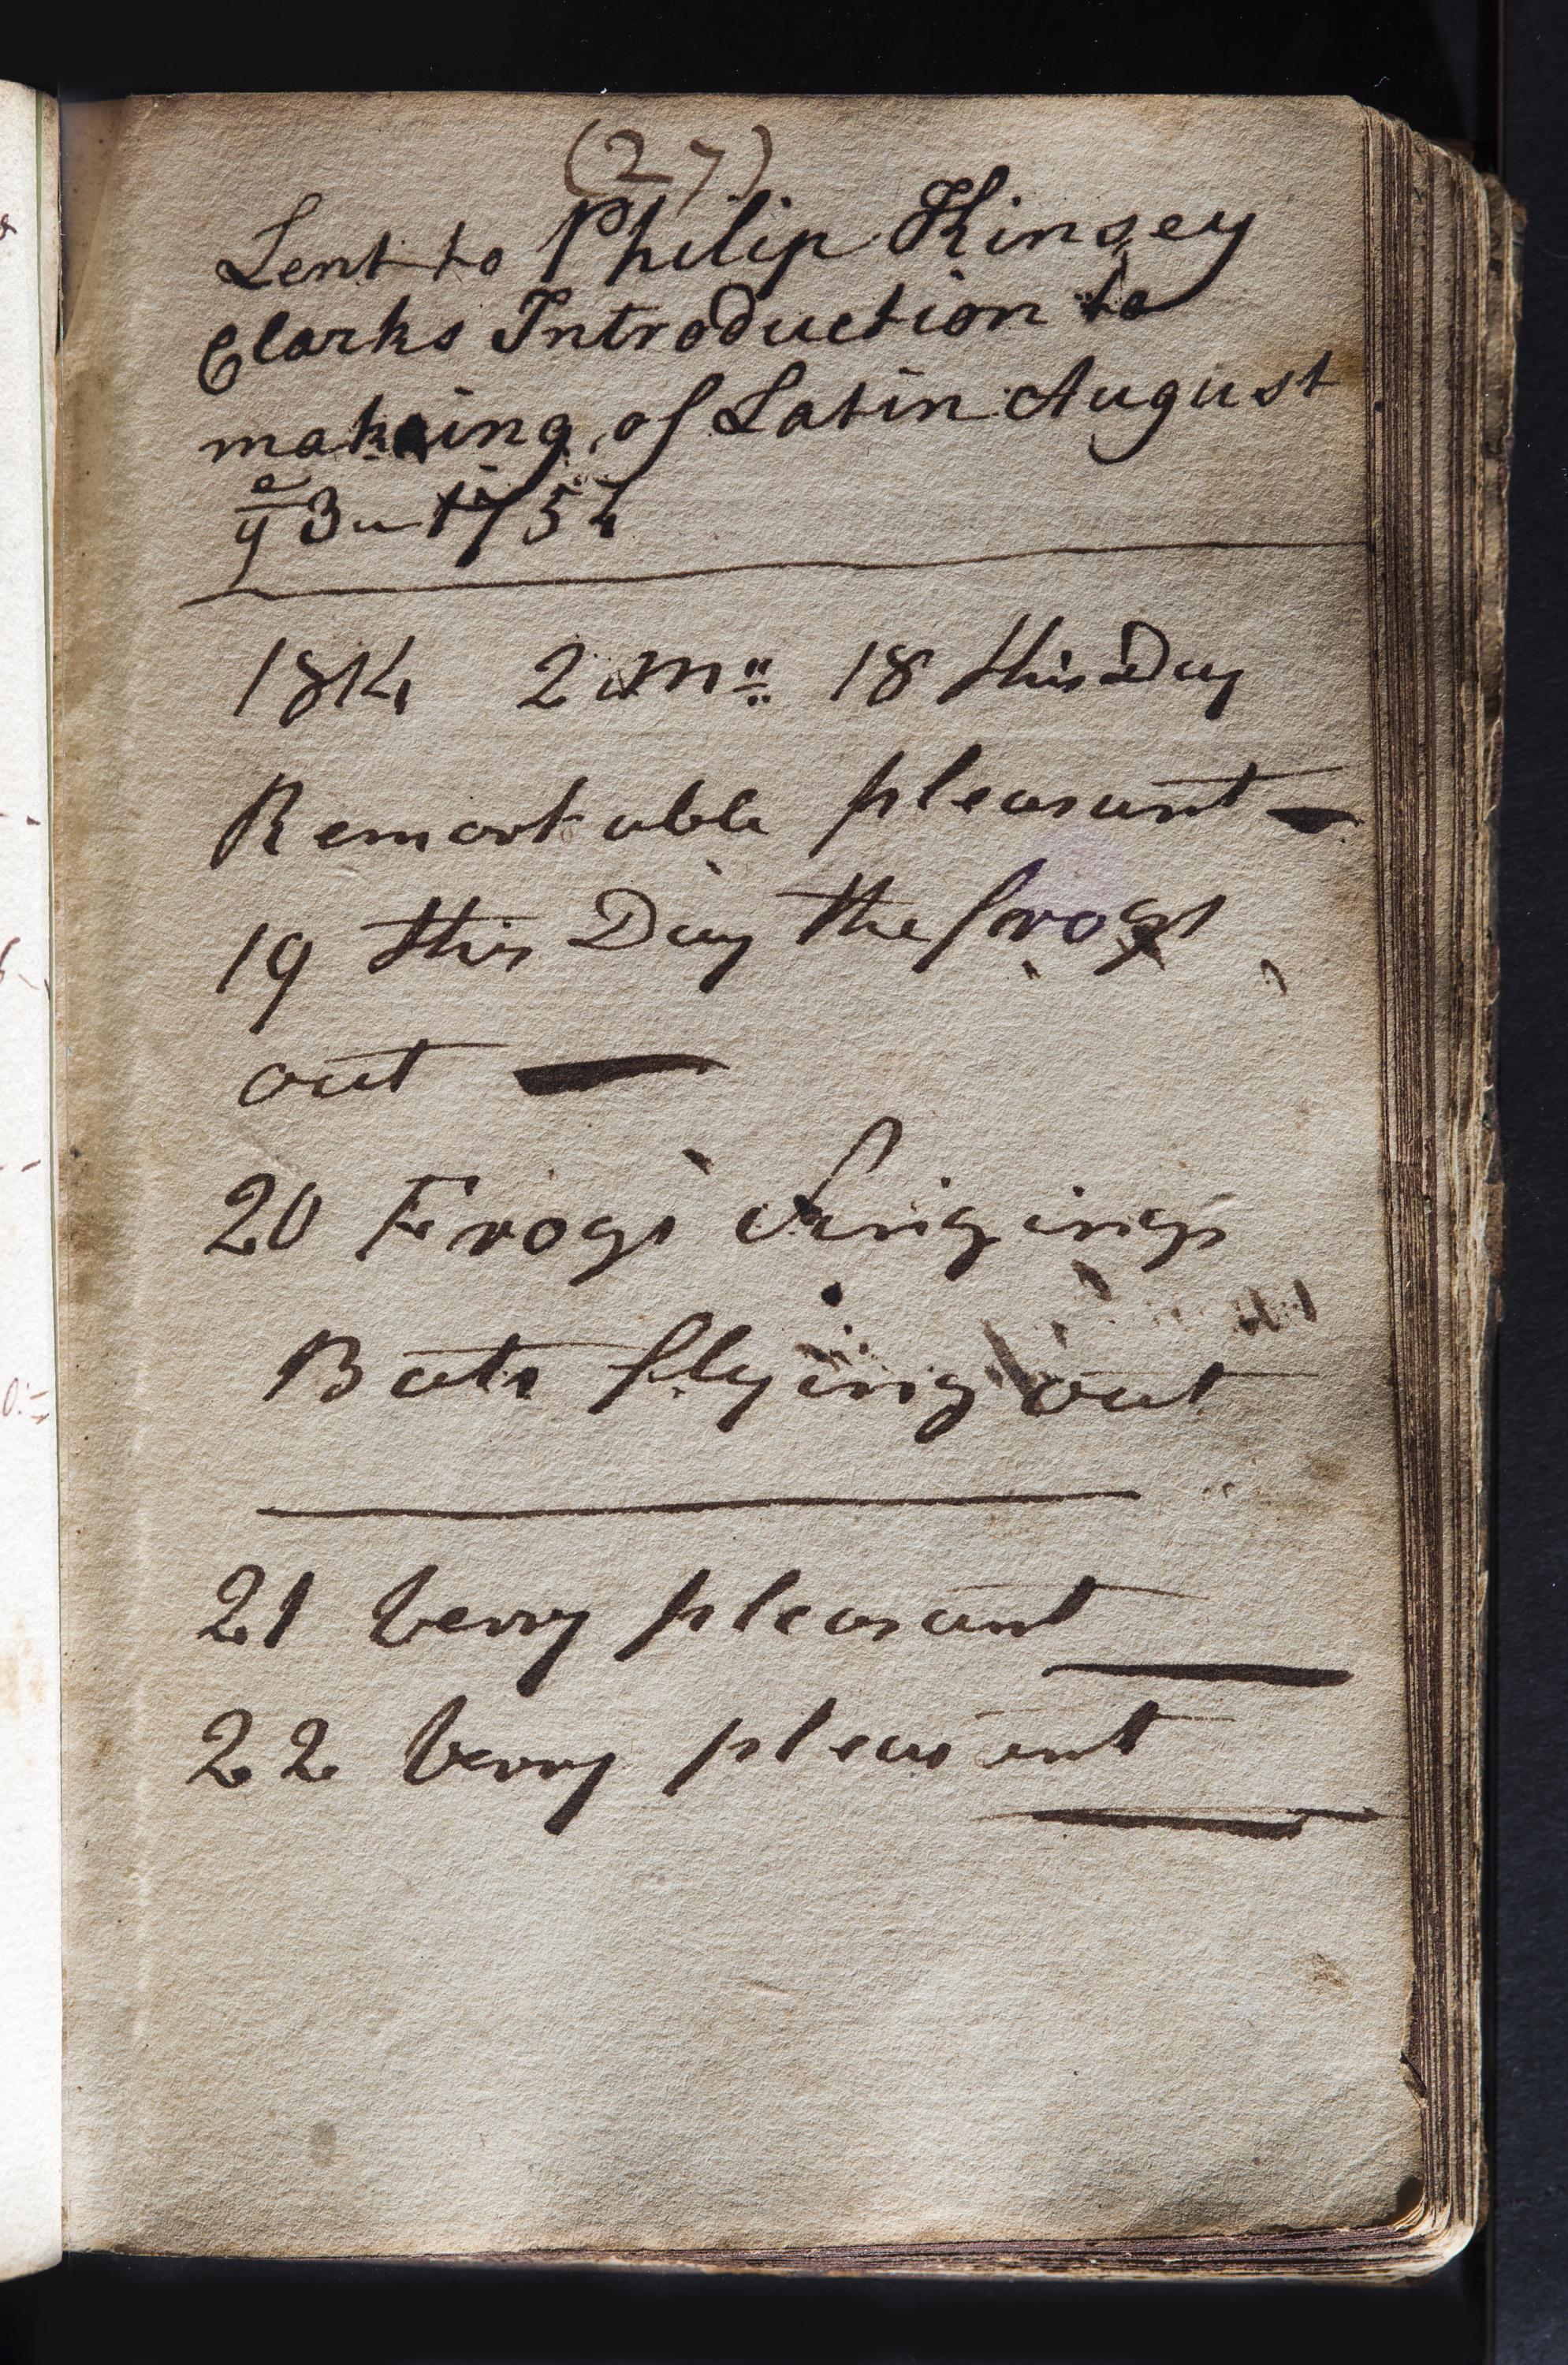 (27)
Lent to Philip Kinsey
Clarks Introduction to
making of Latin August
ye 3 1754
1814 2 Mo 18 this Day
Remarkable pleasant
19 this Day the frogs
out
20 Frogs Singing
Bats flying out
21 verry pleasant
22 verry pleasant